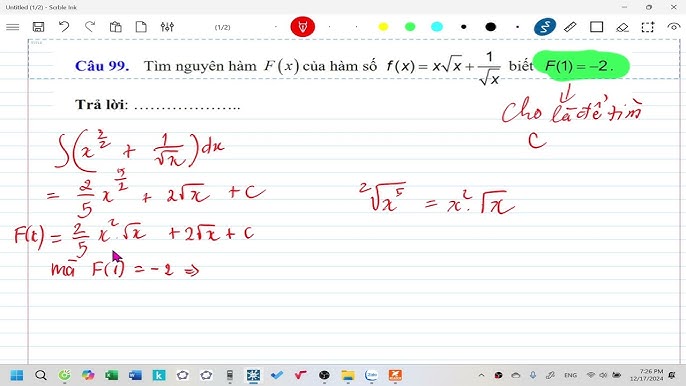 Untitled (1/2) - Scrble Ink
(1/2)
Câu 99. Tìm nguyên hàm F(x) của hàm số f(x) = x√x + 1/√x biết F(1) = −2.
Trả lời: ………………..
Cho là để tìm
C
∫(x^(3/2) + 1/√x)dx
= 2/5 x^(5/2) + 2√x + C
²√x⁵ = x².√x
F(x) = 2/5 x².√x + 2√x + C
mà F(1) = −2 ⇒
ENG
7:26 PM
12/17/2024